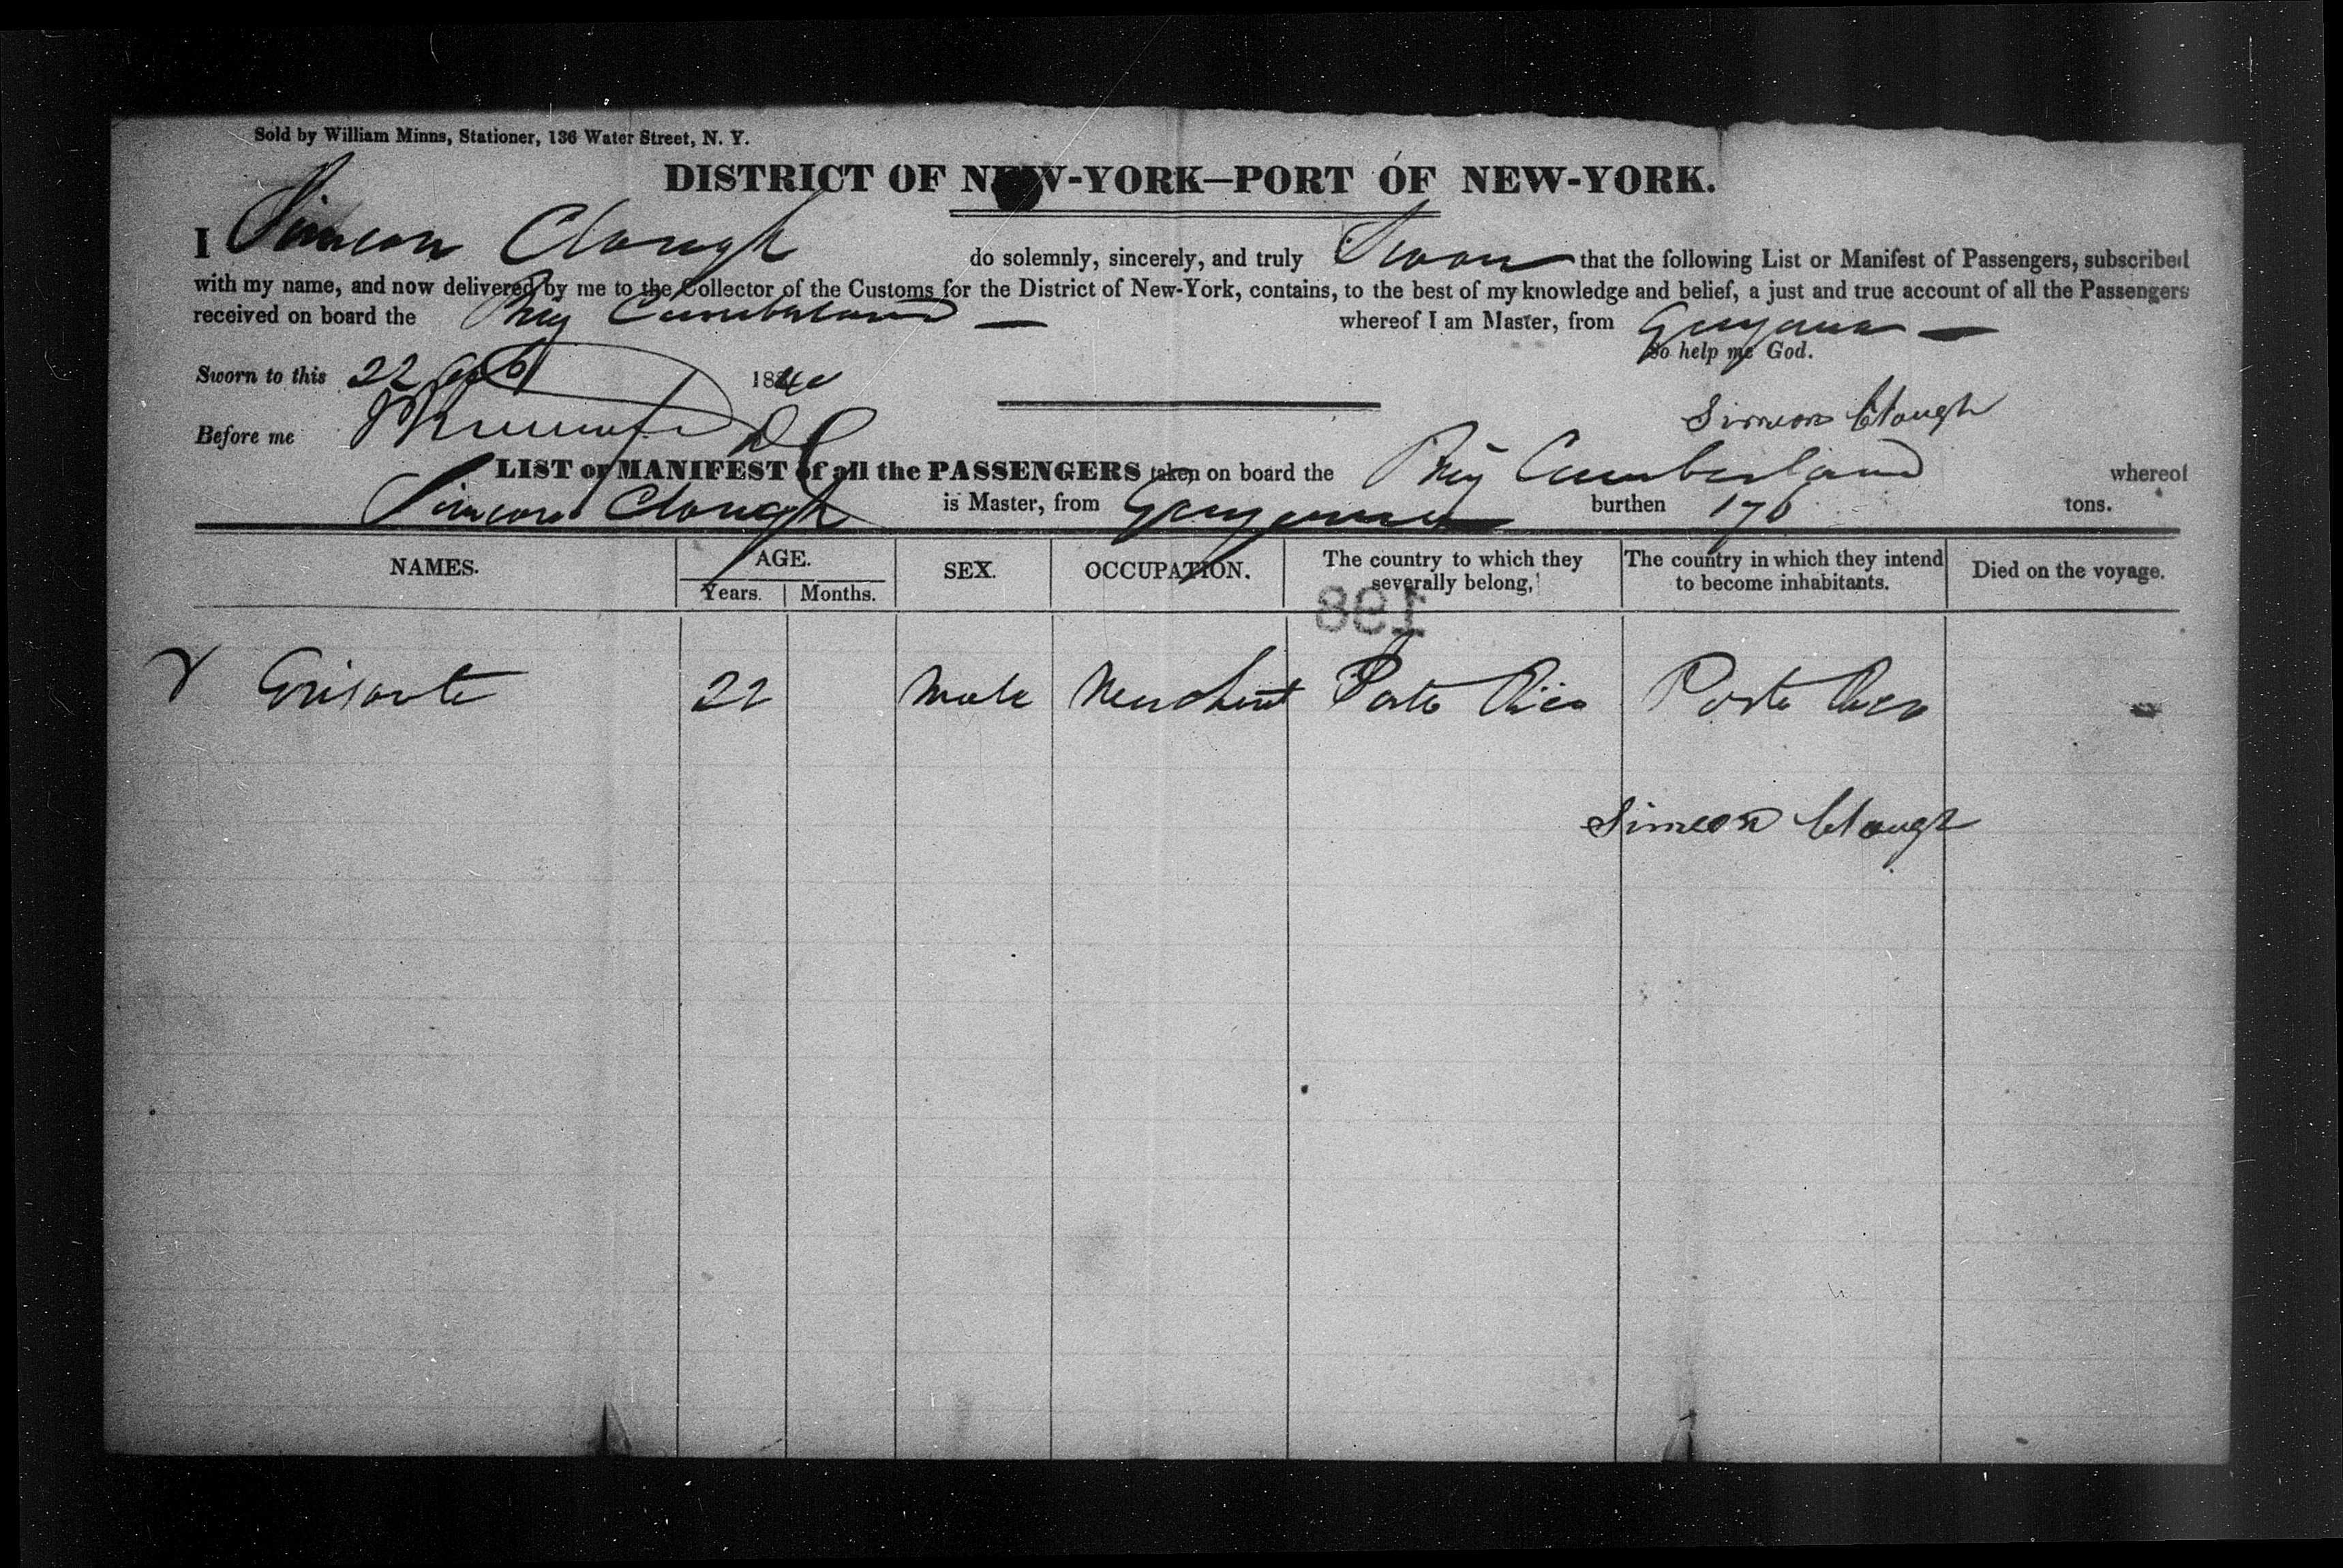 Sold by William Minns, Stationer, 136 Water Street, N. Y.
DISTRICT OF NEW-YORK—PORT OF NEW-YORK.
I Simeon Clough do solemnly, sincerely, and truly Swear that the following List or Manifest of Passengers, subscribed
with my name, and now delivered by me to the Collector of the Customs for the District of New-York, contains, to the best of my knowledge and belief, a just and true account of all the Passengers
received on board the Brig Cumberland whereof I am Master, from Guyama
So help me God.
Sworn to this 22 184
Simeon Clough
Before me
LIST or MANIFEST of all the PASSENGERS taken on board the Brig Cumberland whereof
Simeon Clough is Master, from burthen 176 tons.
NAMES. AGE. SEX. OCCUPATION. The country to which they severally belong, The country in which they intend to become inhabitants. Died on the voyage.
Years. Months.
198
22 Male Merchant Porto Rico Porto Rico
Simeon Clough